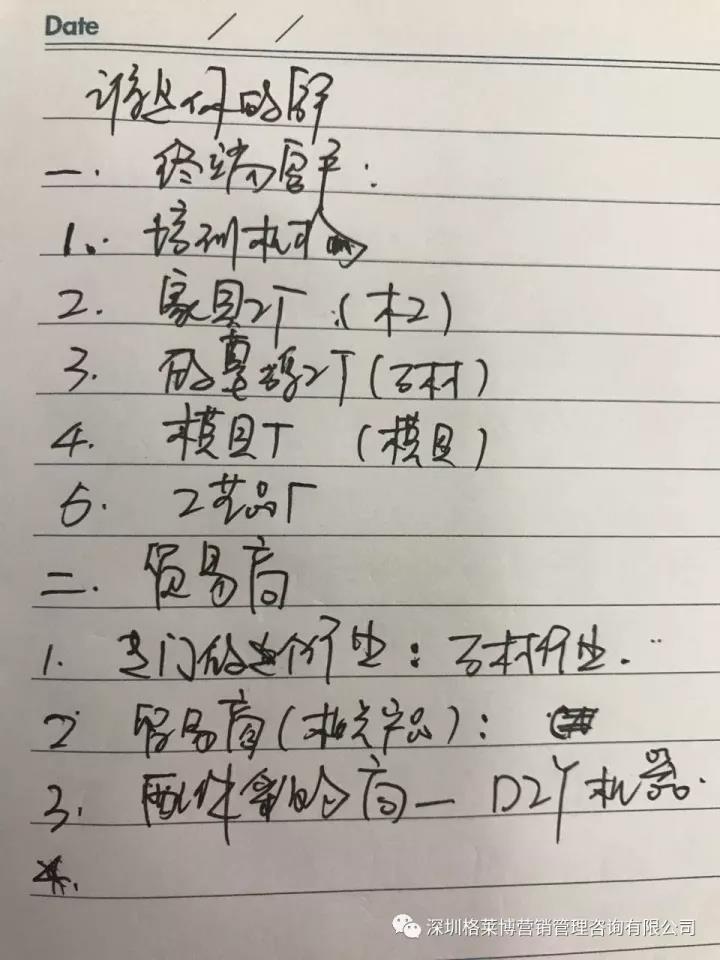 Date / /
谁是你的客户
一. 终端客户:
1. 培训机构
2. 家具工厂 (木工)
3. 做墓碑工厂 (石材)
4. 模具厂 (模具)
5. 工艺品厂
二. 贸易商
1. 专门做这个行业: 石材行业.
2 贸易商 (相关产品):
3. 配件零售商 — DZY机器.
4.
深圳格莱博营销管理咨询有限公司